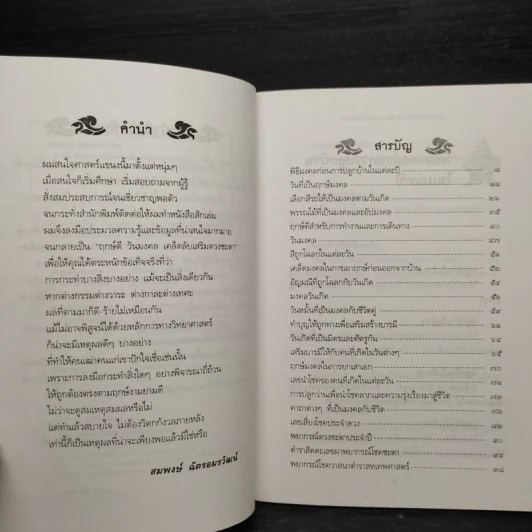 คำนำ
ผมสนใจศาสตร์แขนงนี้มาตั้งแต่หนุ่มๆ
เมื่อสนใจก็เริ่มศึกษา เริ่มสอบถามจากผู้รู้
สั่งสมประสบการณ์จนเชี่ยวชาญพอตัว
จนกระทั่งสำนักพิมพ์ติดต่อให้ผมทำหนังสือสักเล่ม
ผมจึงลงมือประมวลความรู้และข้อมูลที่น่าสนใจมากมาย
จนกลายเป็น "ฤกษ์ดี วันมงคล เคล็ดลับเสริมดวงชะตา"
เพื่อให้คุณได้ตระหนักข้อเท็จจริงที่ว่า
การกระทำบางสิ่งบางอย่าง แม้จะเป็นสิ่งเดียวกัน
หากต่างกรรมต่างวาระ ต่างกาละต่างเทศะ
ผลที่ตามมาก็ดี-ร้ายไม่เหมือนกัน
แม้ไม่อาจพิสูจน์ได้ด้วยหลักการทางวิทยาศาสตร์
ก็น่าจะมีเหตุผลดีๆ บางอย่าง
ที่ทำให้คนเฒ่าคนแก่เขาปักใจเชื่อเช่นนั้น
เพราะการลงมือกระทำสิ่งใดๆ อย่างพิจารณาถี่ถ้วน
ให้ถูกต้องตรงตามฤกษ์งามยามดี
ไม่ว่าจะดูสมเหตุสมผลหรือไม่
แต่ทำแล้วสบายใจ ไม่ต้องวิตกกังวลภายหลัง
เท่านี้ก็เป็นเหตุผลที่น่าจะเพียงพอแล้วมิใช่หรือ
สมพงษ์ ฉัตรอมรวัฒน์
สารบัญ
พิธีมงคลก่อนการปลูกบ้านในแต่ละปี ๘
วันที่เป็นฤกษ์มงคล
เลือกสีรถให้เป็นมงคลตามวันเกิด
พรรณไม้ที่เป็นมงคลและอัปมงคล
ฤกษ์ดีสำหรับการทำงานและการเดินทาง
วันมงคล ๔๗
สีถูกโฉลกในแต่ละวัน
เคล็ดมงคลในการเอาฤกษ์ก่อนออกจากบ้าน
อัญมณีที่ถูกโฉลกกับวันเกิด
มงคลวันเกิด
วันหมั้นที่เป็นมงคลกับชีวิตคู่
ทำบุญให้ถูกทางเพื่อเสริมสร้างบารมี
วันเกิดที่เป็นมิตรและศัตรูกัน
เสริมบารมีให้กับคนที่เกิดในวันต่างๆ ๖๕
ฤกษ์มงคลในการยกเสาเอก ๗๐
เลขนำโชคของคนที่เกิดในแต่ละวัน
การปลูกว่านเพื่อนำโชคลาภและความรุ่งเรืองมาสู่ชีวิต
คาถาต่างๆ ที่เป็นมงคลกับชีวิต
เลขเสี่ยงโชคประจำดวง
พยากรณ์ดวงชะตาประจำปี ๙๐
ตำราสัตตะเลขผาพยากรณ์โชคชะตา ๙๔
พยากรณ์โชควาสนาตำราสหเทพศาสตร์ ๙๘